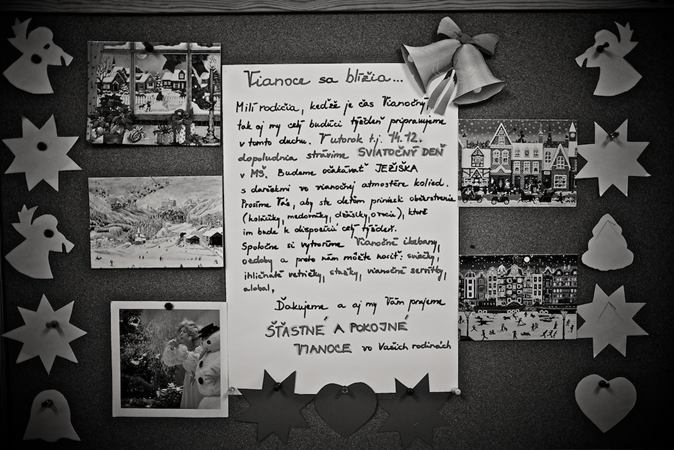 Vianoce sa blížia...
Milí rodičia, keďže je čas Vianočný,
tak aj my celý budúci týždeň pripravujeme
v tomto duchu. V utorok t.j. 14.12.
dopoludnia strávime SVIATOČNÝ DEŇ
v MŠ. Budeme očakávať JEŽIŠKA
s darčekmi vo vianočnej atmosfére kolied.
Prosíme Vás, aby ste deťom priniesli občerstvenie
(koláčiky, medovníky, ovocie), ktoré
im bude k dispozícii celý týždeň.
Spoločne si vytvoríme Vianočné ikebany,
ozdoby a preto nám môžete nosiť: sviečky,
ihličnaté vetvičky, stužky, vianočné servítky,
alobal,
Ďakujeme a aj my Vám prajeme
ŠŤASTNÉ A POKOJNÉ
VIANOCE vo Vašich rodinách